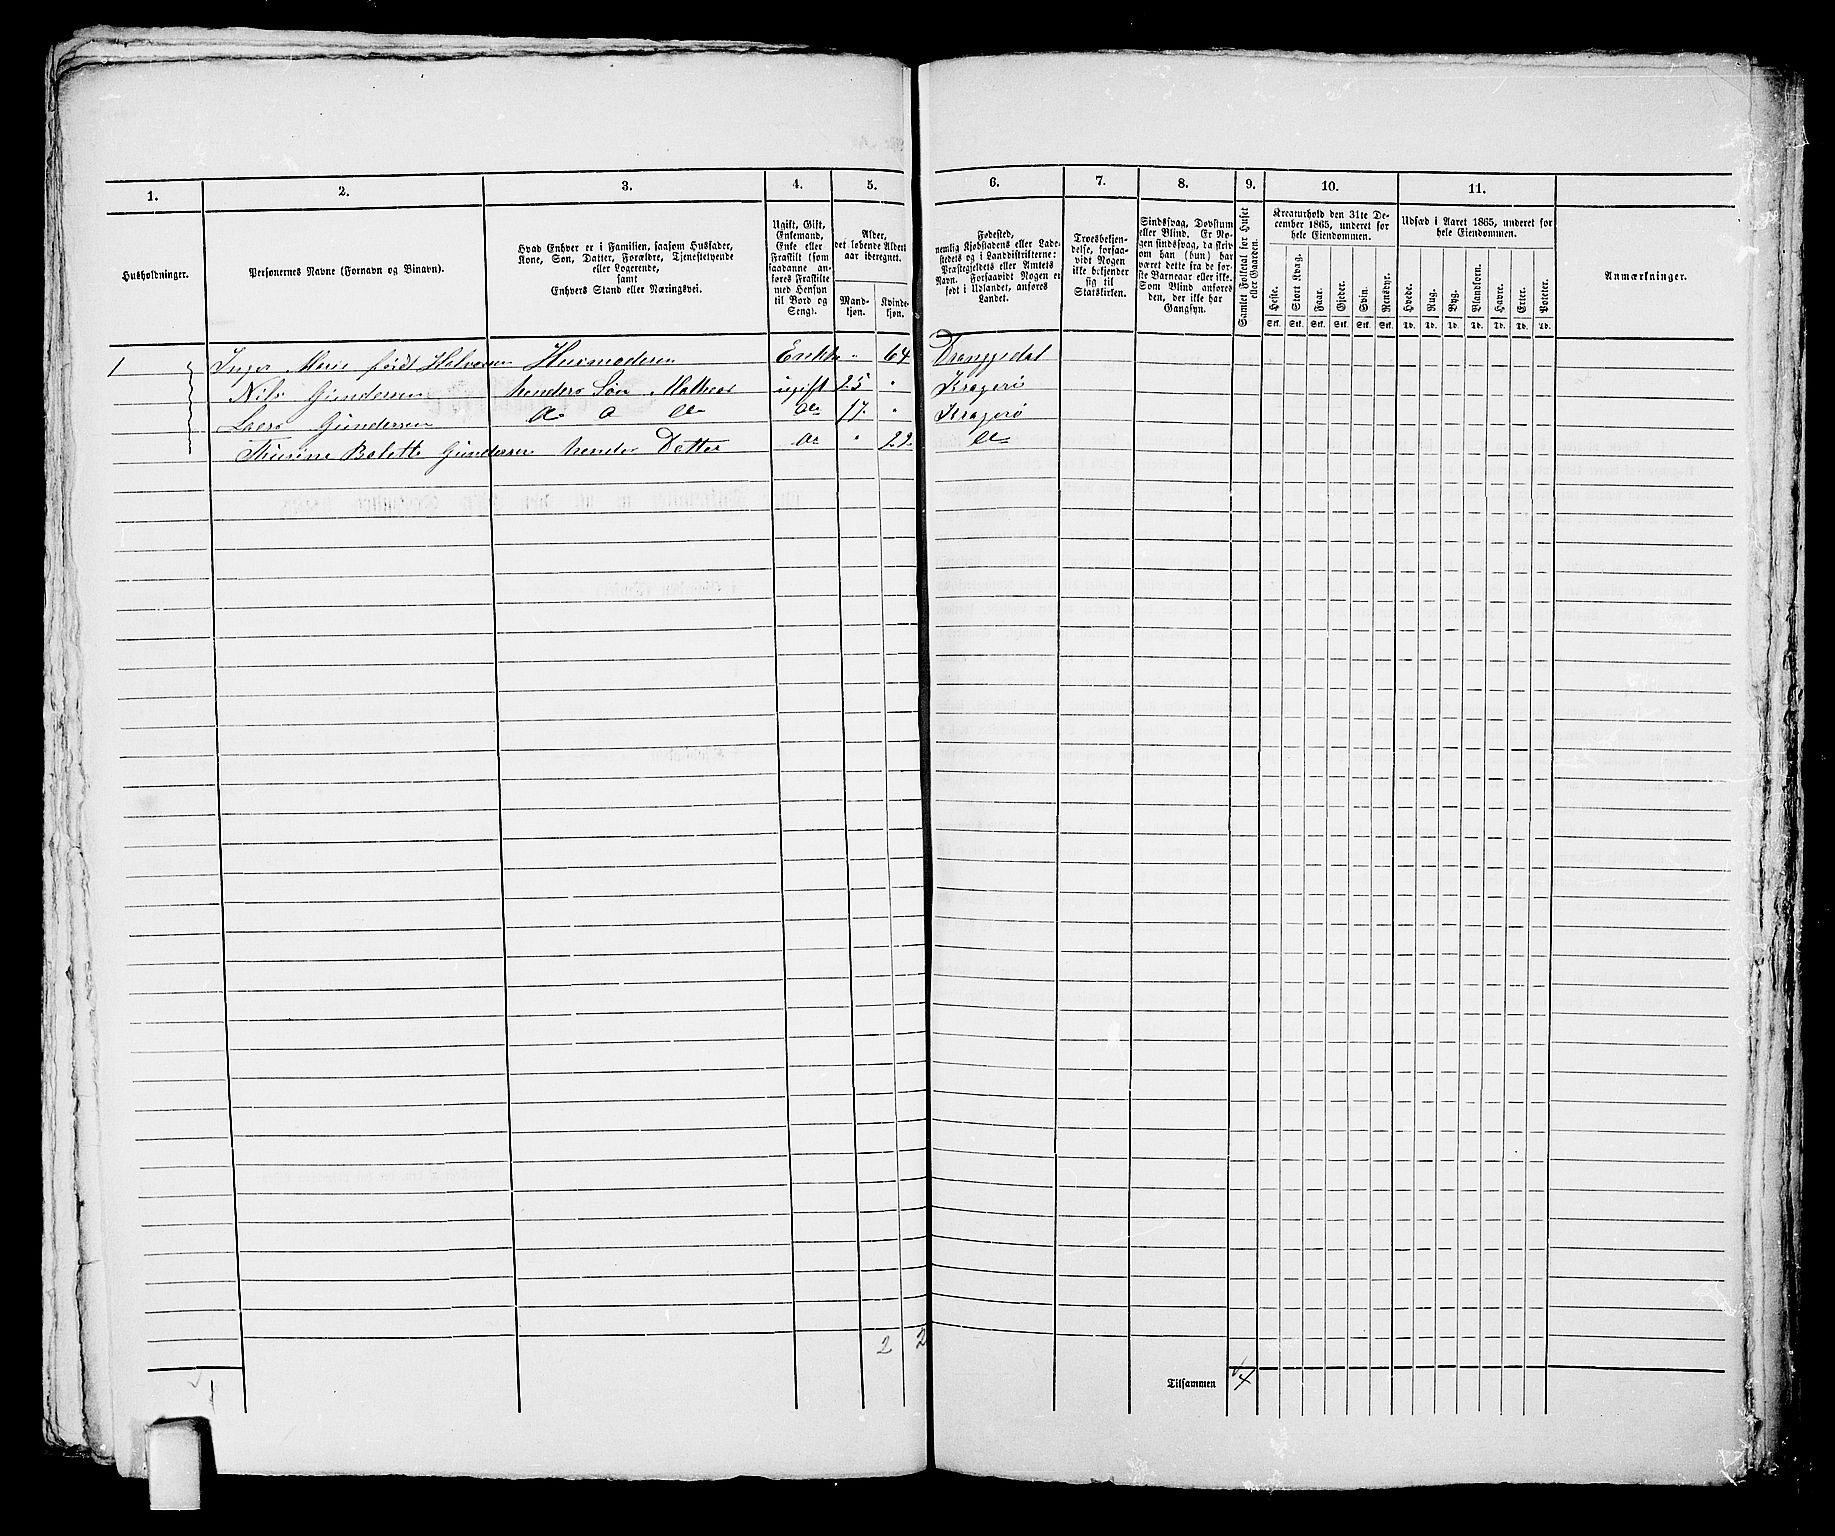 1. 2. 3. 4. 5. 6. 7. 8. 9. 10. 11.
Husholdninger.
Personernes Navne (Fornavn og Binavn).
Hvad Enhver er i Familien, saasom Husfader,
Kone, Søn, Datter, Forældre, Tjenestetyende
eller Logerende,
samt
Enhvers Stand eller Næringsvei.
Ugift, Gift,
Enkemand,
Enke eller
Fraskilt (som
saadanne an-
føres Fraskilte
med Hensyn
til Bord og
Seng).
Alder,
det løbende Alders-
aar iberegnet.
Mand-
kjøn.
Kvinde-
kjøn.
Fødested,
nemlig Kjøbstadens eller Lade-
stedets og i Landdistrikterne:
Præstegjeldets eller Amtets
Navn. Forsaavidt Nogen er
født i Udlandet, anføres
Landet.
Troesbekjen-
delse, forsaa-
vidt Nogen
ikke bekjender
sig til
Statskirken.
Sindssvag, Døvstum
eller Blind. Er No-
gen sindssvag, da skriv
om han (hun) har
været dette fra de før-
ste Barneaar eller ikke.
Som Blind anføres
den, der ikke har
Gangsyn.
Samlet Folketal for Huset
eller Gaarden.
Kreaturhold den 31te De-
cember 1865, underet for
hele Eiendommen.
Heste. Stort Kvæg. Faar. Gjeder. Svin. Rensdyr.
Stk. Stk. Stk. Stk. Stk. Stk.
Udsæd i Aaret 1865, underet for
hele Eiendommen.
Hvede. Rug. Byg. Blandkorn. Havre. Erter. Poteter.
Td. Td. Td. Td. Td. Td. Td.
Anmærkninger.
1 Inger Marie født Halvorsen Husmoderen Enkke " 64 Drangedal
Nils Gundersen hendes Søn Matros ugift 25 " Kragerø
Lars Gundersen do 17 " Kragerø
Thurine Bolette Gundersen hendes Datter do " 22 do
2 2
Tilsammen 4